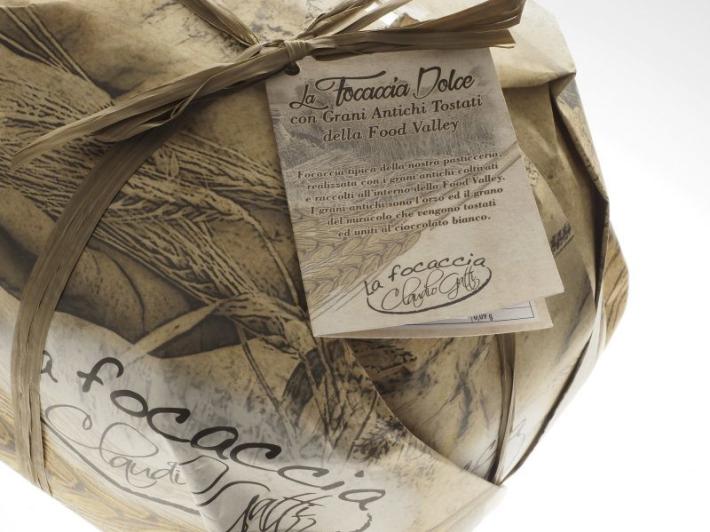 La Focaccia Dolce
con Grani Antichi Tostati
della Food Valley
Focaccia tipica della nostra pasticceria,
realizzata con i grani antichi coltivati
e raccolti all'interno della Food Valley.
I grani antichi sono l'orzo ed il grano
del miracolo che vengono tostati
ed uniti al cioccolato bianco.
la focaccia
Claudio Gatti
0,09 g
a focaccia
Claudio Gatti